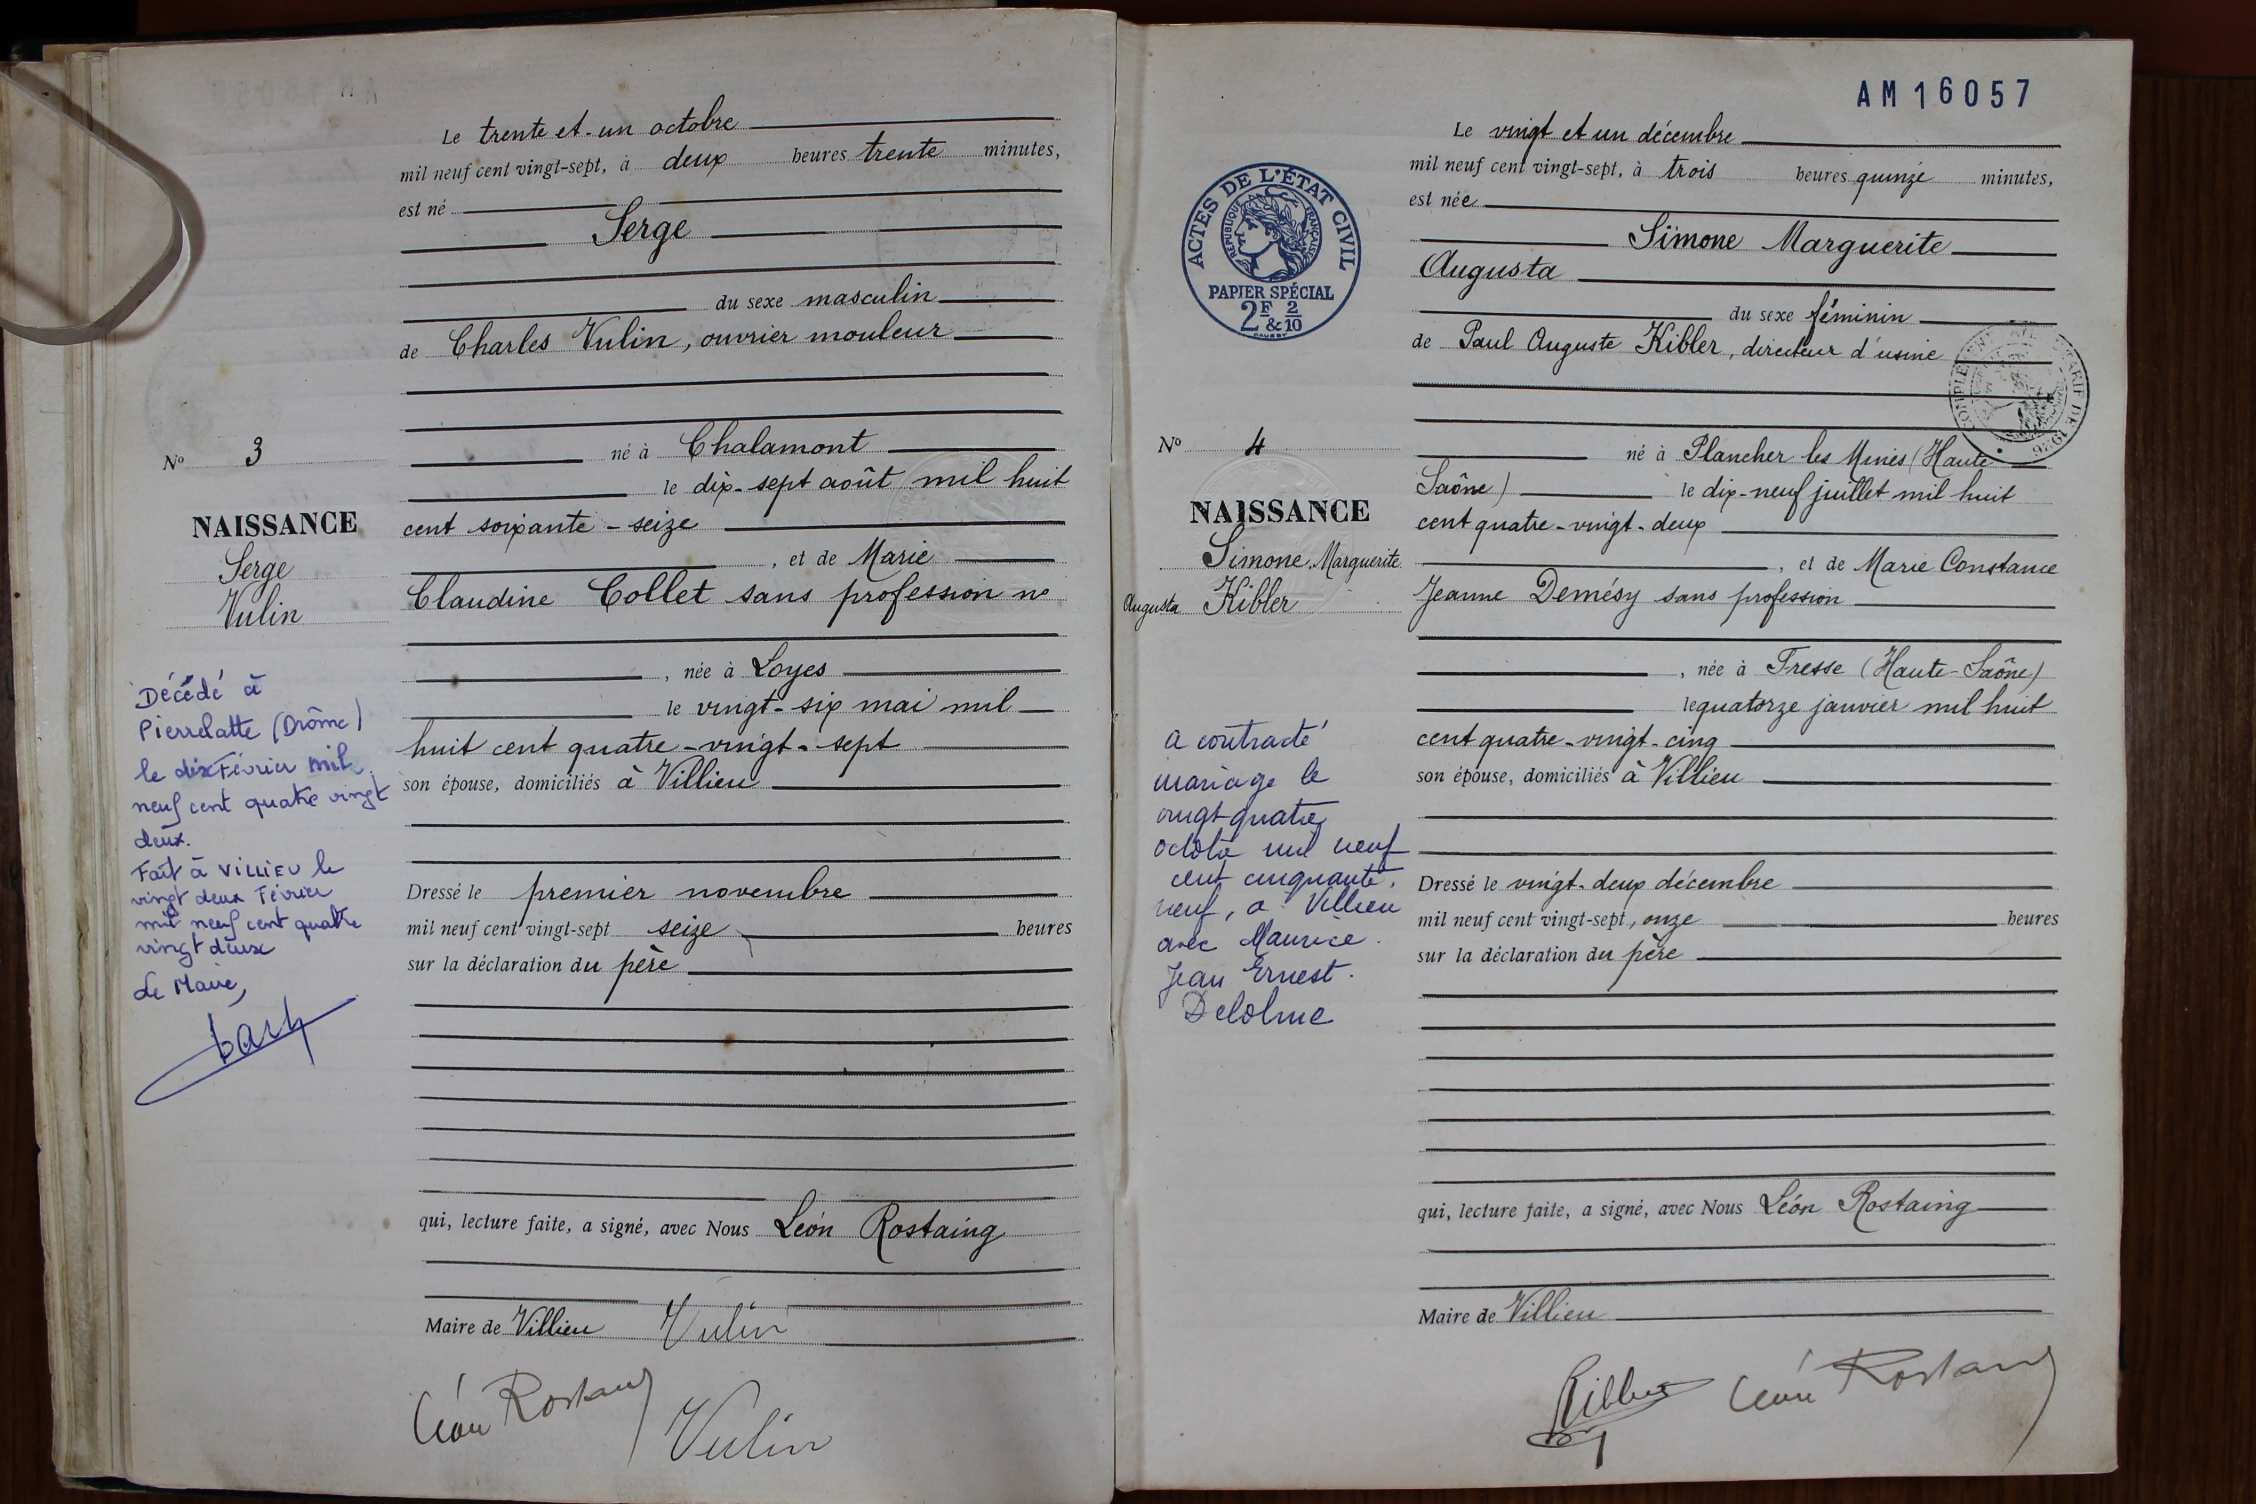 Le trente et-un octobre
mil neuf cent vingt-sept, à deux heures trente minutes,
est né
Serge
du sexe masculin
de Charles Vulin, ouvrier mouleur
né à Chalamont
le dix-sept août mil huit
cent soixante-seize
, et de Marie
Claudine Collet sans profession
, née à Loyes
le vingt-six mai mil
huit cent quatre-vingt-sept
son épouse, domiciliés à Villieu
Dressé le premier novembre
mil neuf cent vingt-sept seize heures
sur la déclaration du père
qui, lecture faite, a signé, avec Nous Léon Rostaing
Maire de Villieu Vulin
Léon Rostaing
Vulin
No 3
NAISSANCE
Serge
Vulin
Décédé à
Pierrelatte (Drôme)
le dix Février mil
neuf cent quatre vingt
deux.
Fait à VILLIEU le
vingt deux Février
mil neuf cent quatre
vingt deux
Le Maire,
AM16057
Le vingt et un décembre
mil neuf cent vingt-sept, à trois heures quinze minutes,
est née
Simone Marguerite
Augusta
du sexe féminin
de Paul Auguste Kibler, directeur d'usine
né à Plancher les Mines (Haute
Saône) le dix-neuf juillet mil huit
cent quatre-vingt-deux
, et de Marie Constance
Jeanne Demésy sans profession
, née à Fresse (Haute-Saône)
le quatorze janvier mil huit
cent quatre-vingt-cinq
son épouse, domiciliés à Villieu
Dressé le vingt-deux décembre
mil neuf cent vingt-sept, onze heures
sur la déclaration du père
qui, lecture faite, a signé, avec Nous Léon Rostaing
Maire de Villieu
Kibler Léon Rostaing
ACTES DE L'ÉTAT CIVIL
RÉPUBLIQUE FRANÇAISE
PAPIER SPÉCIAL
2F & 2/10
No 4
NAISSANCE
Simone Marguerite
Augusta Kibler
a contracté
mariage le
vingt-quatre
octobre mil neuf
cent cinquante-
neuf, à Villieu
avec Maurice
Jean Ernest
Delolme